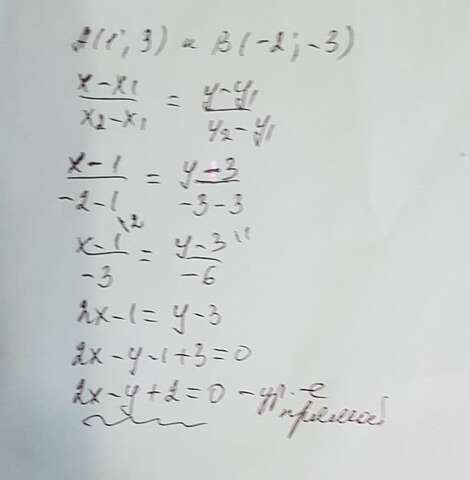 A(1; 3) и B(-2; -3)
x-x₁/x₂-x₁ = y-y₁/y₂-y₁
x-1/-2-1 = y-3/-3-3
x-1\2/-3 = y-3\1/-6
2x-1 = y-3
2x-y-1+3=0
2x-y+2=0 - ур-е
прямой